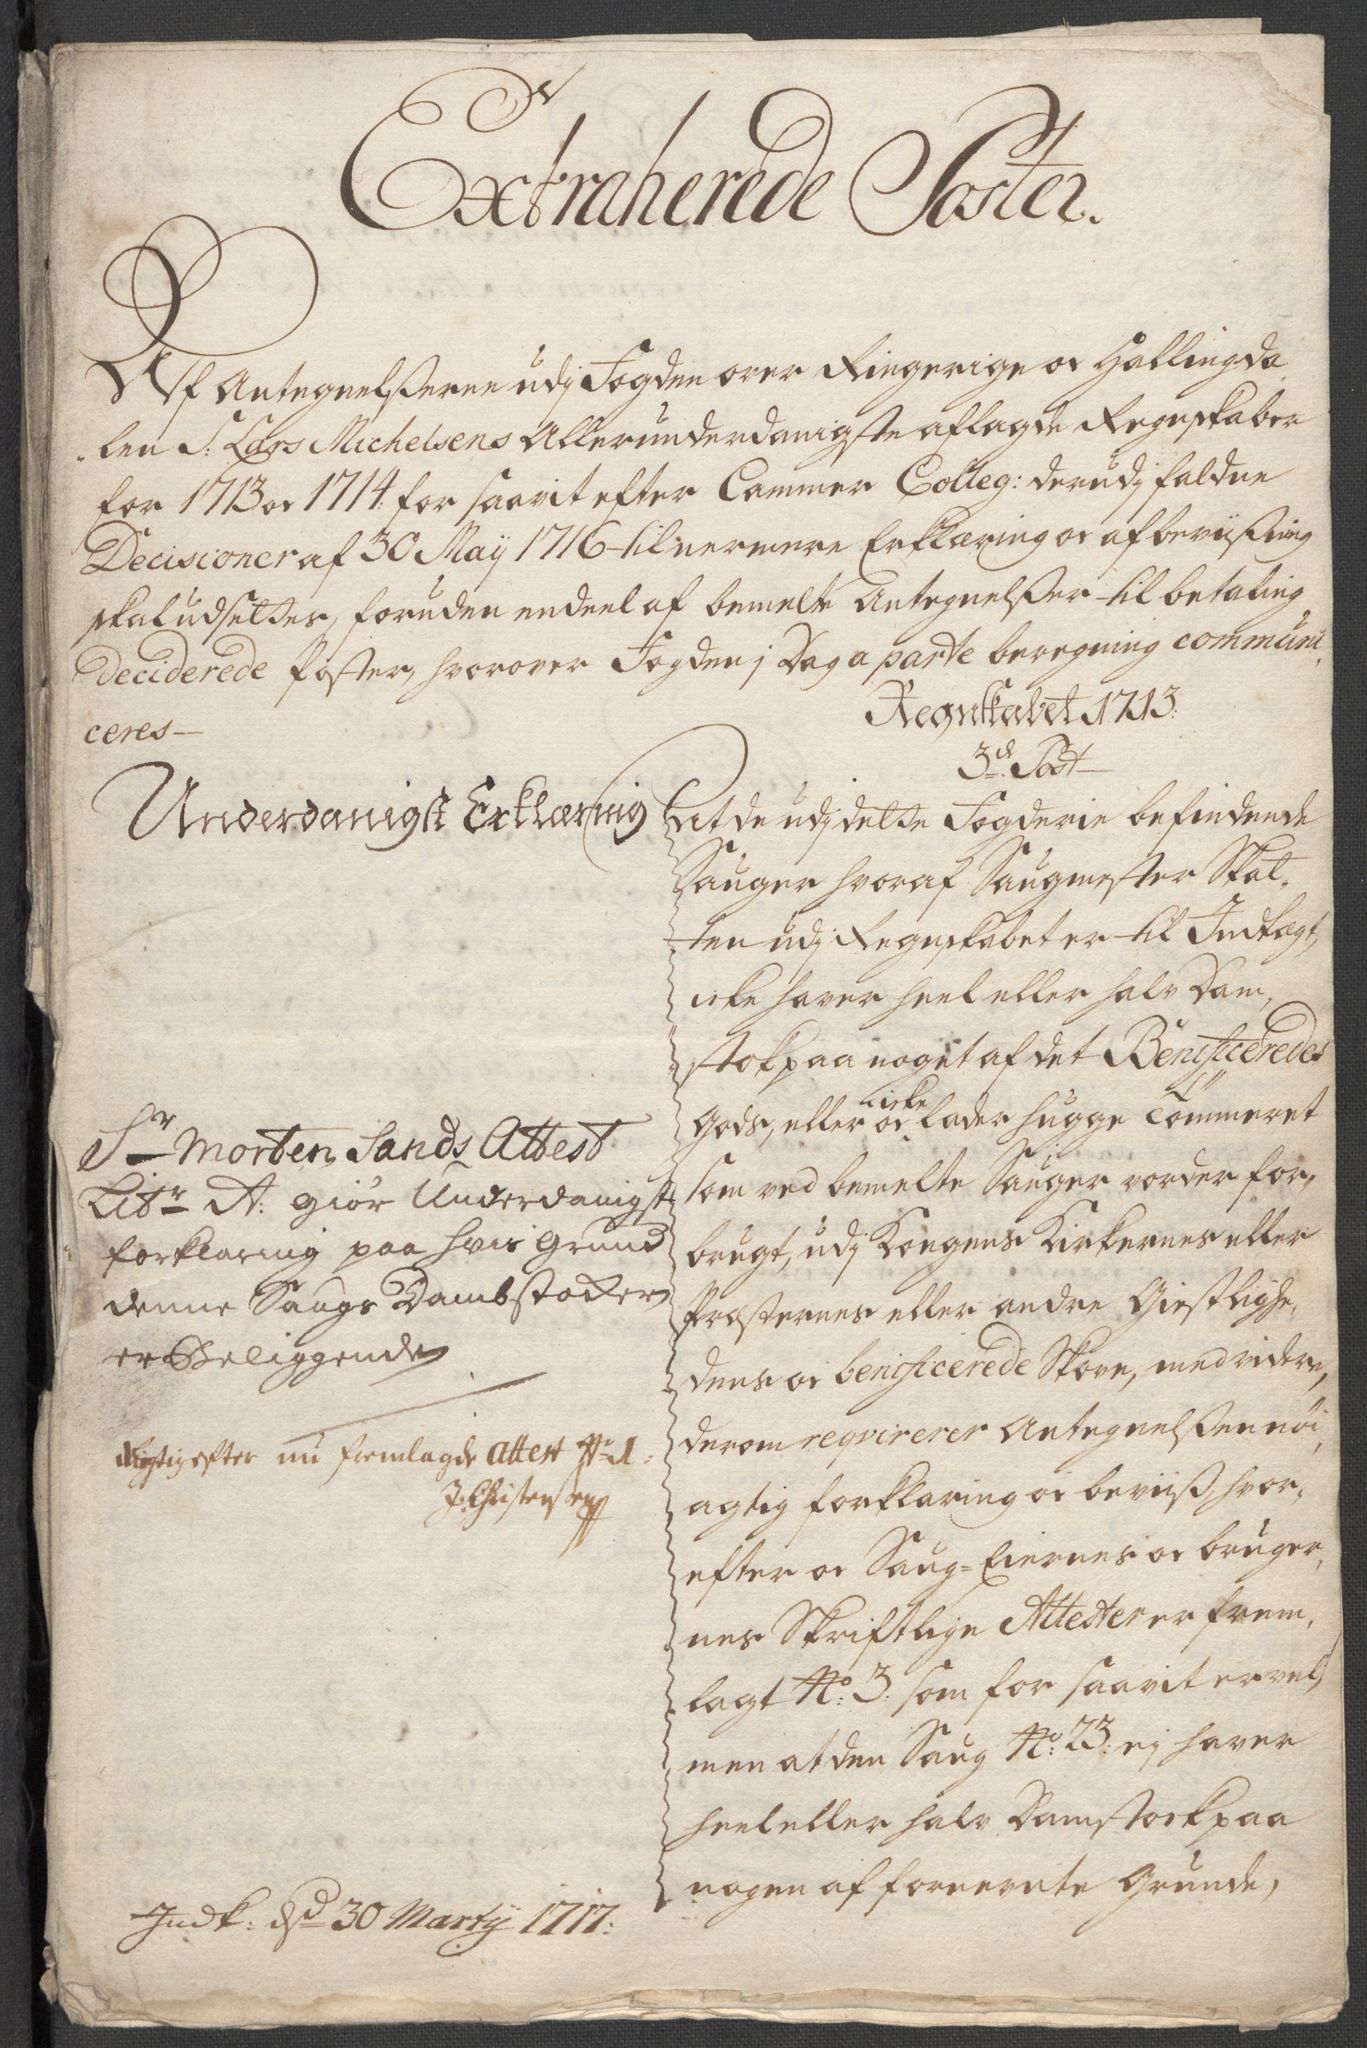 Extraherede Poster.
Af Antegnelserne udj Fogden over Ringerige oc Hallingda
len S: Lars Michelsens Allerunderdanigste aflagde Regnskaber
for 1713 oc 1714 for saavit efter Cammer Colleg: derudj faldne
Decisioner af 30 Maÿ 1716 til nermere Erklæring oc afbeviisning
skal udsettes, foruden endeel af bemelte Antegnelser til betaling
deciderede Poster, hvorover Fogden j Dag a parte beregning communi,
ceres—
Regnskabet 1713:
3de Post—
Underdanigst Erklæring
At de udj dette Fogderie befindende
Sauger hvoraf Saugmester Skat,
ten udj Regnskabet er til Indtægt,
icke haver heel eller halv Dam,
stok paa noget af det Beneficerede
Gods, eller oc icke lader hugge Tømmeret
som ved bemelte Sauger vorder for,
brugt, udj Kongens Kirkernes eller
Præsternes eller andre Giestlighe,
dens oc beneficerede Skove, med videre,
derom reqvirerer Antegnelsen nøi,
agtig forklaring oc beviis, hvor,
efter oc Saug-Eiernes oc bruger,
nes Skriftlige Attester er frem,
lagt No: 3: som for saavit er vel,
men at den Saug No: 23: ej haver
heel eller halv Damstock paa
nogen af forernevnte Grunde,
Sr Morten Sands Attest
Litr A: giør Underdanigst
forklaring paa hvis Grund
denne Saugs Dambstocker
er Beliggende
Rigtig efter nu fremlagde Attest No 1.
J: Christensen
Indk: d 30 Martÿ 1717: